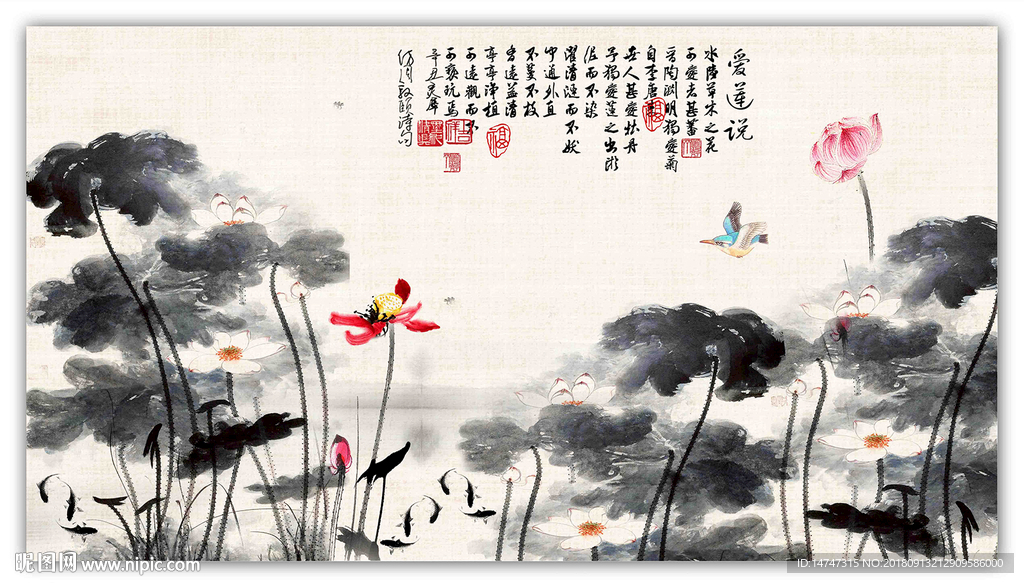 愛蓮说
水陸草木之花
可愛者甚蕃
晋陶渊明獨愛菊
自李唐来
世人甚愛牡丹
予獨愛蓮之出淤
泥而不染
濯清漣而不妖
中通外直
不蔓不枝
香遠益清
亭亭淨植
可遠觀而不
可褻玩焉
辛丑
昵图网 www.nipic.com
ID:14747315 NO:20180913212909586000